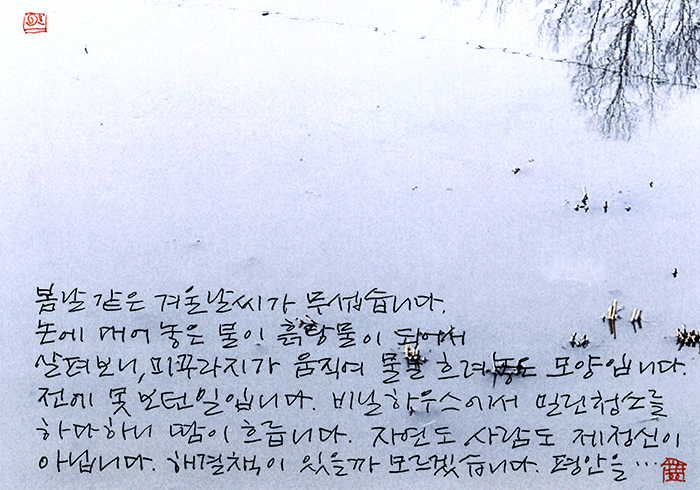 봄날 같은 겨울날씨가 무섭습니다.
논에 대어 놓은 물이 흙탕물이 되어서
살펴보니, 미꾸라지가 움직여 물을 흐려놓은 모양입니다.
전에 못 보던일입니다. 비닐하우스에서 밀린청소를
하다하니 땀이 흐릅니다. 자연도 사람도 제정신이
아닙니다. 해결책이 있을까 모르겠습니다. 평안을…